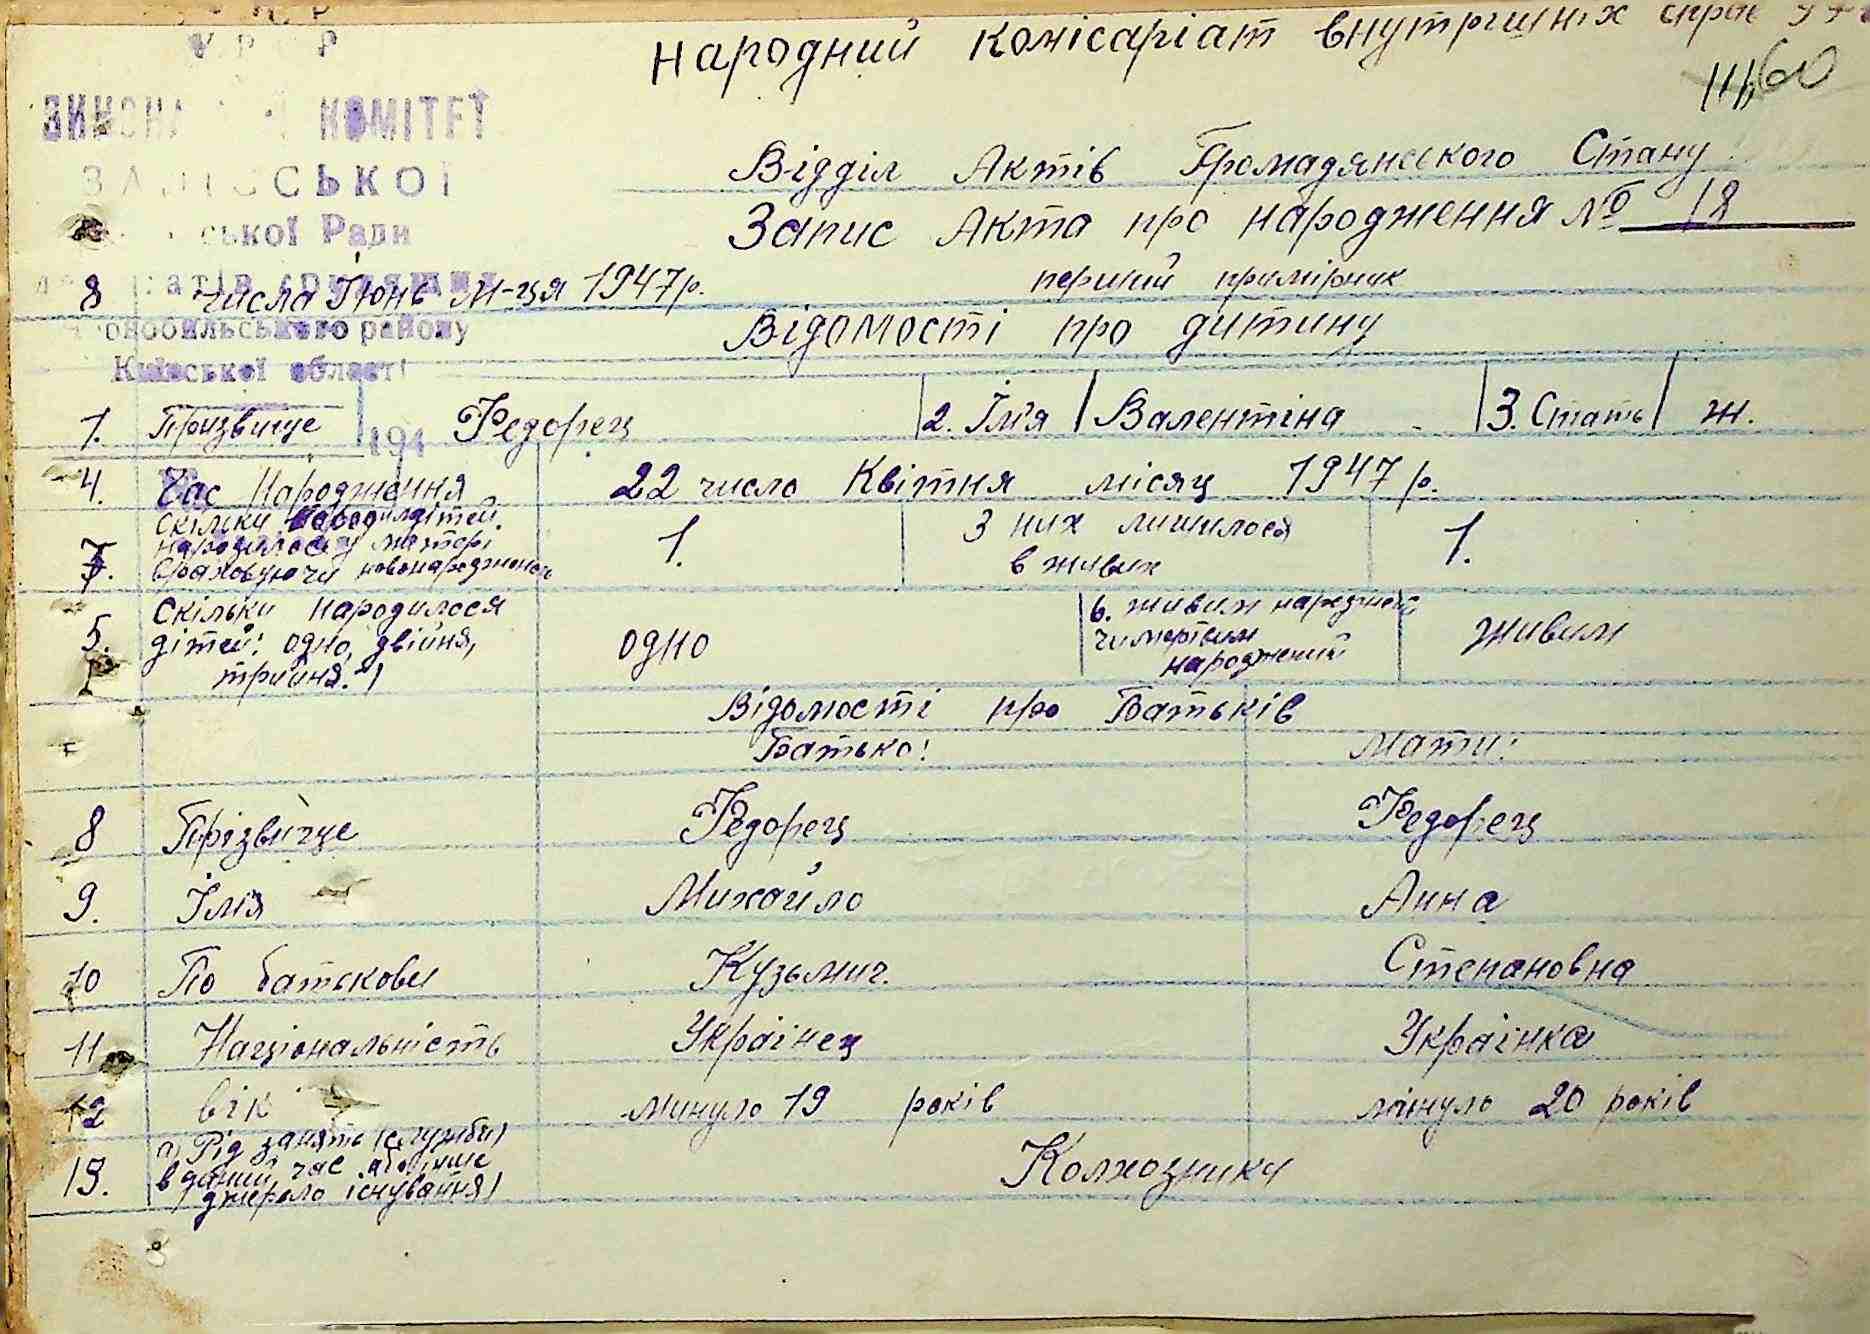 УРСР
Народний комісаріат внутрішніх справ
60
КОМІТЕТ
Відділ Актів Громадянського Стану
Запис Акта про народження № 18
ської Ради
8 числа Июнь м-ця 1947р.
перший примірник
Відомості про дитину
Київської області
1. Прізвище Федорец 2. Імя Валентіна 3. Стать ж.
194
4. Час Народження 22 число Квітня місяц 1947 р.
7. скільки дітей народилося у матері враховуючи новонародженого 1. З них лишилося в живих 1.
5. Скільки народилося дітей: одно, двійня, трийня. одно 6. живим народжен чи мертвим народжений живим
Відомості про Батьків
Батько: Мати:
8 Прізвище Федорец Федорец
9. Імя Михайло Анна
10 По батькови Кузьмич. Степановна
11 Національність Українец Українка
12 вік минуло 19 років минуло 20 років
13. а) Рід занять (служби) в даний час або інше джерело існування) Колхозники